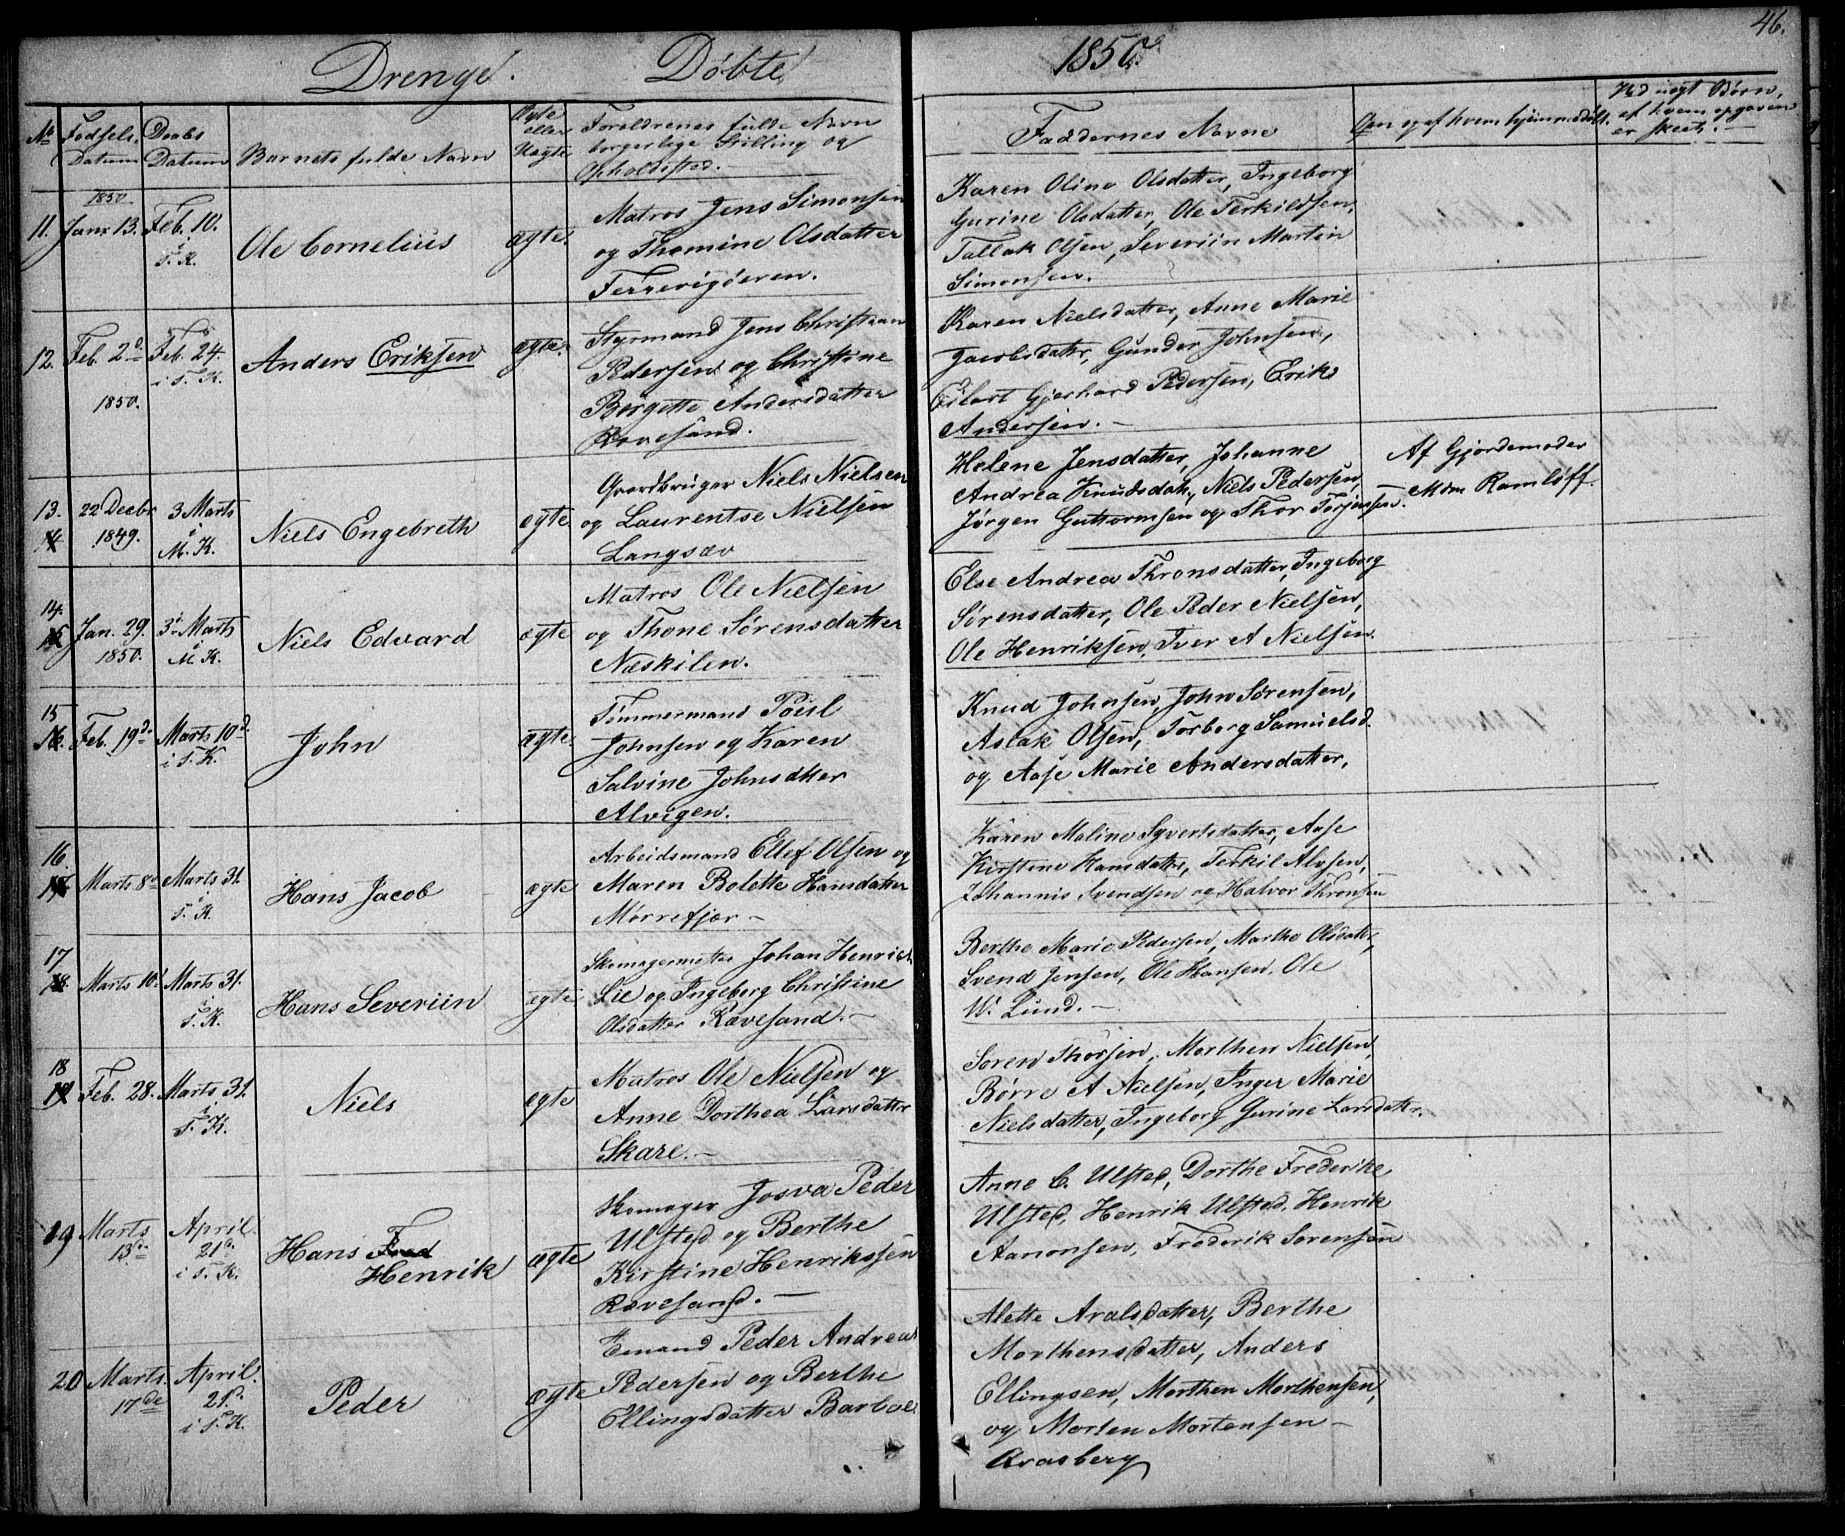 46.
Drenge. Døbte 1850.
No Fødsels Datum
Daabs Datum
Barnets fulde Navn
Ægte eller Uægte
Forældrenes fulde Navn
borgerlige Stilling og
Opholdssted.
Faddernes Navne
Om og af hvem hjemmedøbt.
Ved uægt Børn,
af hvem opgaven
er skeet.
11. 1850 Janr 13. Feb. 10. i T. K. Ole Cornelius ægte.
Matros Jens Simonsen
og Thomine Olsdatter
Færrevigøeren.
Karen Oline Olsdatter, Ingeborg
Gurine Olsdatter, Ole Terkildsen,
Tallak Olsen, Severiin Martin
Simonsen.
12. Feb. 2d 1850. Feb. 24. i T. K. Anders Eriksen ægte.
Styrmand Jens Christian
Pedersen og Christine
Børgette Andersdatter
Rævesand.
Karen Nielsdatter, Anne Marie
Jacobsdatr, Gunder Johnsen,
Eilert Gjerhard Pedersen, Erik
Andersen.
13. 22 Decbr 1849. 3 Marts i M. K. Niels Engebreth ægte
Gaardbruger Niels Nielsen
og Laurentse Nielsen
Langsæv
Helene Jensdatter, Johanne
Andrea Knudsdatr, Niels Pedersen,
Jørgen Guttormsen og Thor Torjensen.
Af Gjordemoder
Mdm Ramløff.
14. Jan. 29. 1850. 3 Marts i M. K. Niels Edvard ægte
Matros Ole Nielsen
og Thone Sørensdatter
Næskilen.
Else Andrea Thronsdatter, Ingeborg
Sørensdatter, Ole Peder Nielsen,
Ole Henriksen, Iver A Nielsen.
15 Feb. 19d Marts 10d i T. K. John ægte.
Tømmermand Poisl
Johnsen og Karen
Salvine Johnsdtter
Alvigen.
Knud Johnsen, John Sørensen,
Aslak Olsen, Torborg Samuelsd.
og Aase Marie Andersdatter,
16. Marts 8d Marts 31. i T. K. Hans Jacob ægte
Arbeidsmand Ellef Olsen og
Maren Bolette Hansdatter
Mørrefjær
Karen Maline Syvertsdatter, Aase
Kirstine Hansdattr, Terkil Alvsen,
Johannis Svendsen og Halvor Thronsen
17 Marts 10d Marts 31. i T. K. Hans Severiin ægte
Skomagermester Johan Henrick
Lie og Ingeborg Christine
Olsdatter Rævesand.
Berthe Marie Pedersen, Marthe Olsdatter,
Svend Jensen, Ole Hansen. Ole
W. Lund.
18 Feb. 28. Marts 31. i T. K. Niels ægte
Matros Ole Nielsen og
Anne Dorthea Larsdatter
Skare.
Søren Thorsen, Morthen Nielsen,
Børre A Nielsen, Inger Marie
Nielsdatter, Ingeborg Gurine Larsdattr.
19 Marts 13de April 21d. i T. K. Hans Henrik ægte
Skomager Josva Peder
Ulsted og Berthe
Kirstine Henrikssen
Rævesand.
Anne C. Ulsted, Dorthe Frederike
Ulsted, Henrik Ulsted, Henrik
Aanonsen, Frederik Sørensen
20 Marts. 17de April. 21d. i T. K. Peder ægte
Peder Andreas
Pedersen og Berthe
Ellingsdatter Barboe
Alette Aralsdatter, Berthe
Morthensdatter, Anders
Ellingsen, Morthen Morthensen,
og Morten Mortensen
Aasberg